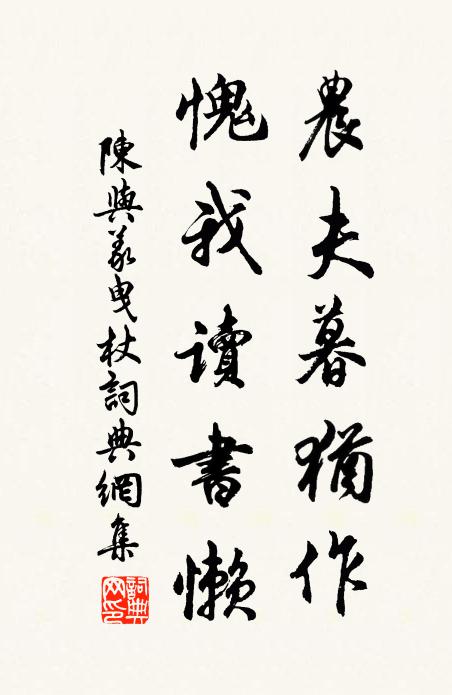 農夫暮猶作
愧我讀書懶
陳與義曳杖詞典網集
詞典網印